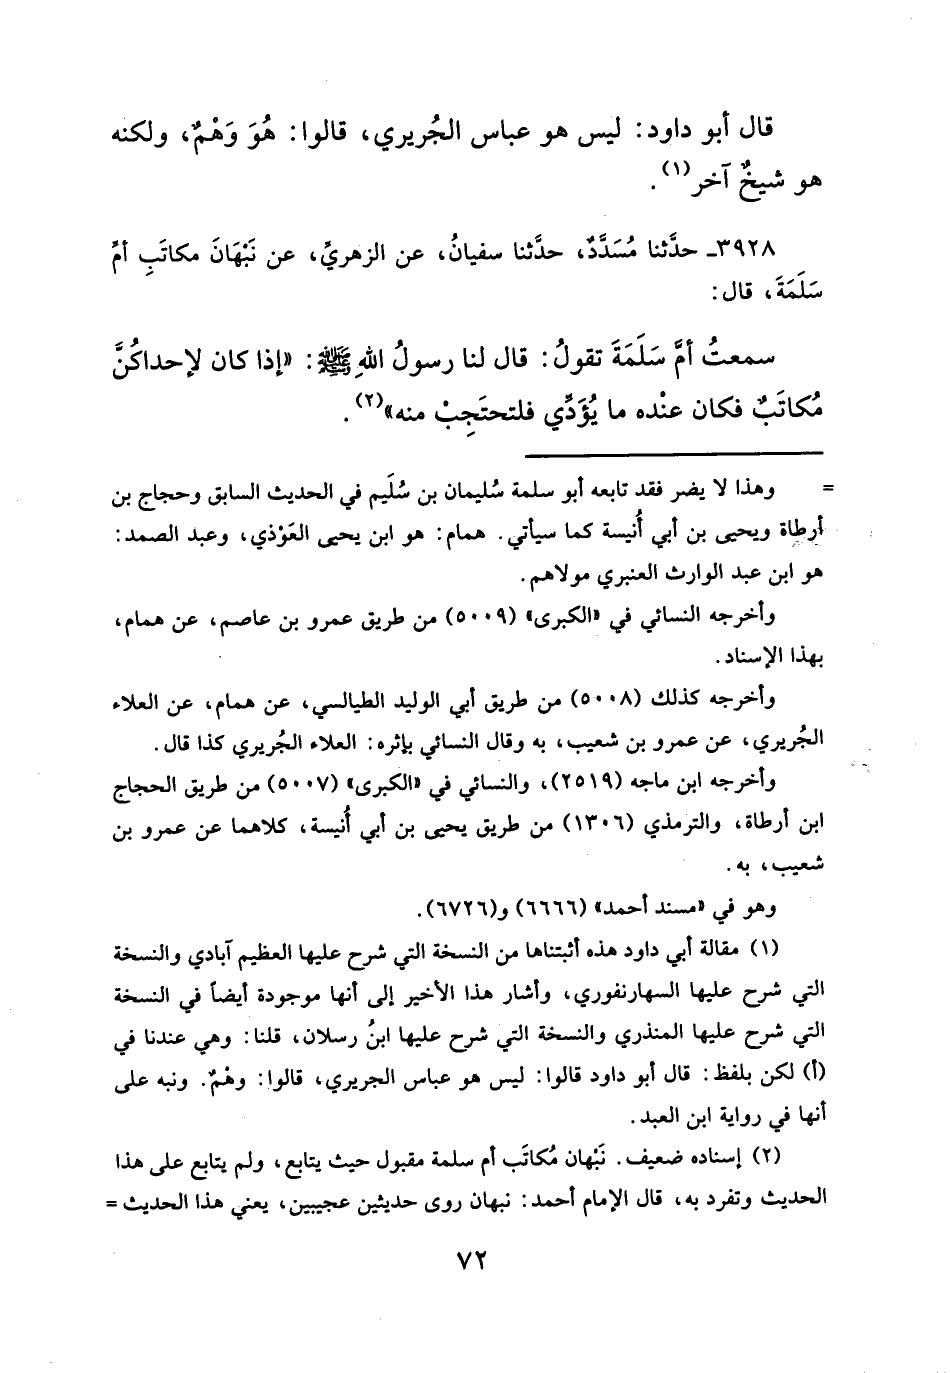 قال أبو داود: ليس هو عباس الجُريري، قالوا: هُوَ وَهْمٌ، ولكنه
هو شيخٌ آخر(١).
٣٩٢٨ـ حدَّثنا مُسَدَّدٌ، حدَّثنا سفيانُ، عن الزهريِّ، عن نَبْهَانَ مكاتَبِ أمِّ
سَلَمَةَ، قال:
سمعتُ أمَّ سَلَمَةَ تقولُ: قال لنا رسولُ اللهِ ﷺ: «إذا كان لإحداكُنَّ
مُكاتَبٌ فكان عنْده ما يُؤَدِّي فلتحتَجِبْ منه»(٢).
= وهذا لا يضر فقد تابعه أبو سلمة سُليمان بن سُلَيم في الحديث السابق وحجاج بن
أرطاة ويحيى بن أبي أُنيسة كما سيأتي. همام: هو ابن يحيى العَوْذي، وعبد الصمد:
هو ابن عبد الوارث العنبري مولاهم.
وأخرجه النسائي في «الكبرى» (٥٠٠٩) من طريق عمرو بن عاصم، عن همام،
بهذا الإسناد.
وأخرجه كذلك (٥٠٠٨) من طريق أبي الوليد الطيالسي، عن همام، عن العلاء
الجُريري، عن عمرو بن شعيب، به وقال النسائي بإثره: العلاء الجُريري كذا قال.
وأخرجه ابن ماجه (٢٥١٩)، والنسائي في «الكبرى» (٥٠٠٧) من طريق الحجاج
ابن أرطاة، والترمذي (١٣٠٦) من طريق يحيى بن أبي أُنيسة، كلاهما عن عمرو بن
شعيب، به.
وهو في «مسند أحمد» (٦٦٦٦) و(٦٧٢٦).
(١) مقالة أبي داود هذه أثبتناها من النسخة التي شرح عليها العظيم آبادي والنسخة
التي شرح عليها السهارنفوري، وأشار هذا الأخير إلى أنها موجودة أيضاً في النسخة
التي شرح عليها المنذري والنسخة التي شرح عليها ابنُ رسلان، قلنا: وهي عندنا في
(أ) لكن بلفظ: قال أبو داود قالوا: ليس هو عباس الجريري، قالوا: وهْمٌ. ونبه على
أنها في رواية ابن العبد.
(٢) إسناده ضعيف. نَبْهان مُكاتَب أم سلمة مقبول حيث يتابع، ولم يتابع على هذا
الحديث وتفرد به، قال الإمام أحمد: نبهان روى حديثين عجيبين، يعني هذا الحديث =
٧٢